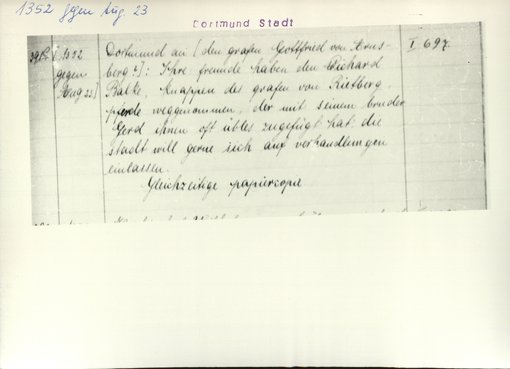 1352 gegen Aug. 23
Dortmund Stadt
1352 Dortmund an [den grafen Gottfried von Arns- I 697.
gegen berg?]: Ihre freunde haben den Richard
Aug 23] Balke, knappen des grafen von Rietberg,
pferde weggenommen, der mit seinem bruder
Gerd ihnen oft übles zugefügt hat: die
stadt will gerne sich auf verhandlungen
einlassen.
Gleichzeitige papiercopie